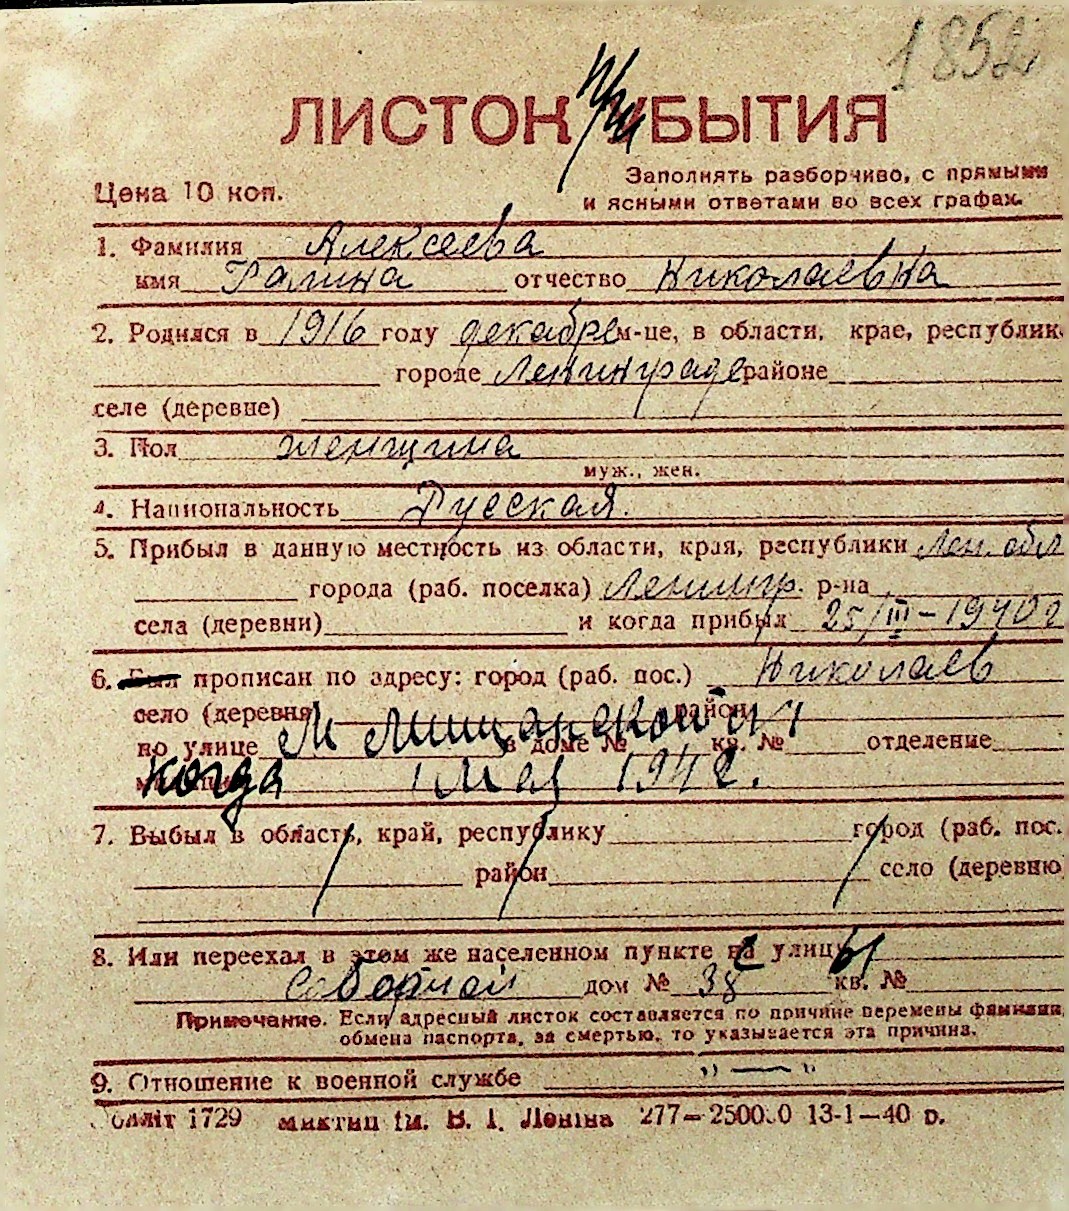 1852
ЛИСТОК при УБЫТИЯ
Цена 10 коп.
Заполнять разборчиво, с прямыми
и ясными ответами во всех графах.
1. Фамилия Алексеева
имя Галина отчество Николаевна
2. Родился в 1916 году декабре м-це, в области, крае, республик
городе Ленинграде районе
селе (деревне)
3. Пол женщина
муж., жен.
4. Национальность Русская.
5. Прибыл в данную местность из области, края, республики Лен. обл
города (раб. поселка) Ленингр. р-на
села (деревни) и когда прибыл 25/III-1940 г
6. Был прописан по адресу: город (раб. пос.) Николаев
село (деревня) район
по улице М Мещанской в доме № кв. № отделение
когда 1 мая 1942.
7. Выбыл в область, край, республику город (раб. пос.
район село (деревню
8. Или переехал в этом же населенном пункте с улицы
Соборной дом № 38 кв. №
Примечание. Если адресный листок составляется по причине перемены фамилии,
обмена паспорта, за смертью, то указывается эта причина.
9. Отношение к военной службе "—"
1729 ім. В. І. Леніна 277—13-1—40 р.